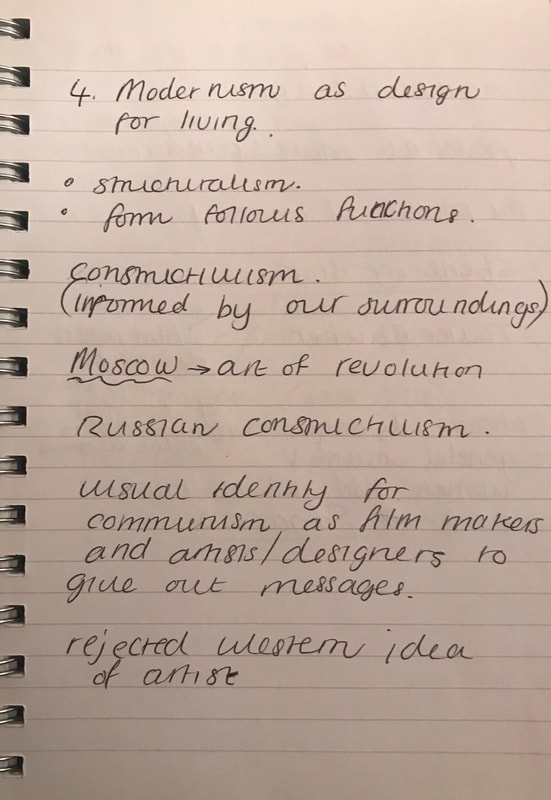 4. Modernism as design
for living.
• structuralism.
• form follows functions.
constructivism.
(informed by our surroundings)
Moscow → art of revolution
Russian constructivism.
visual identity for
communism, as film makers
and artists/designers to
give out messages.
rejected western idea
of artist